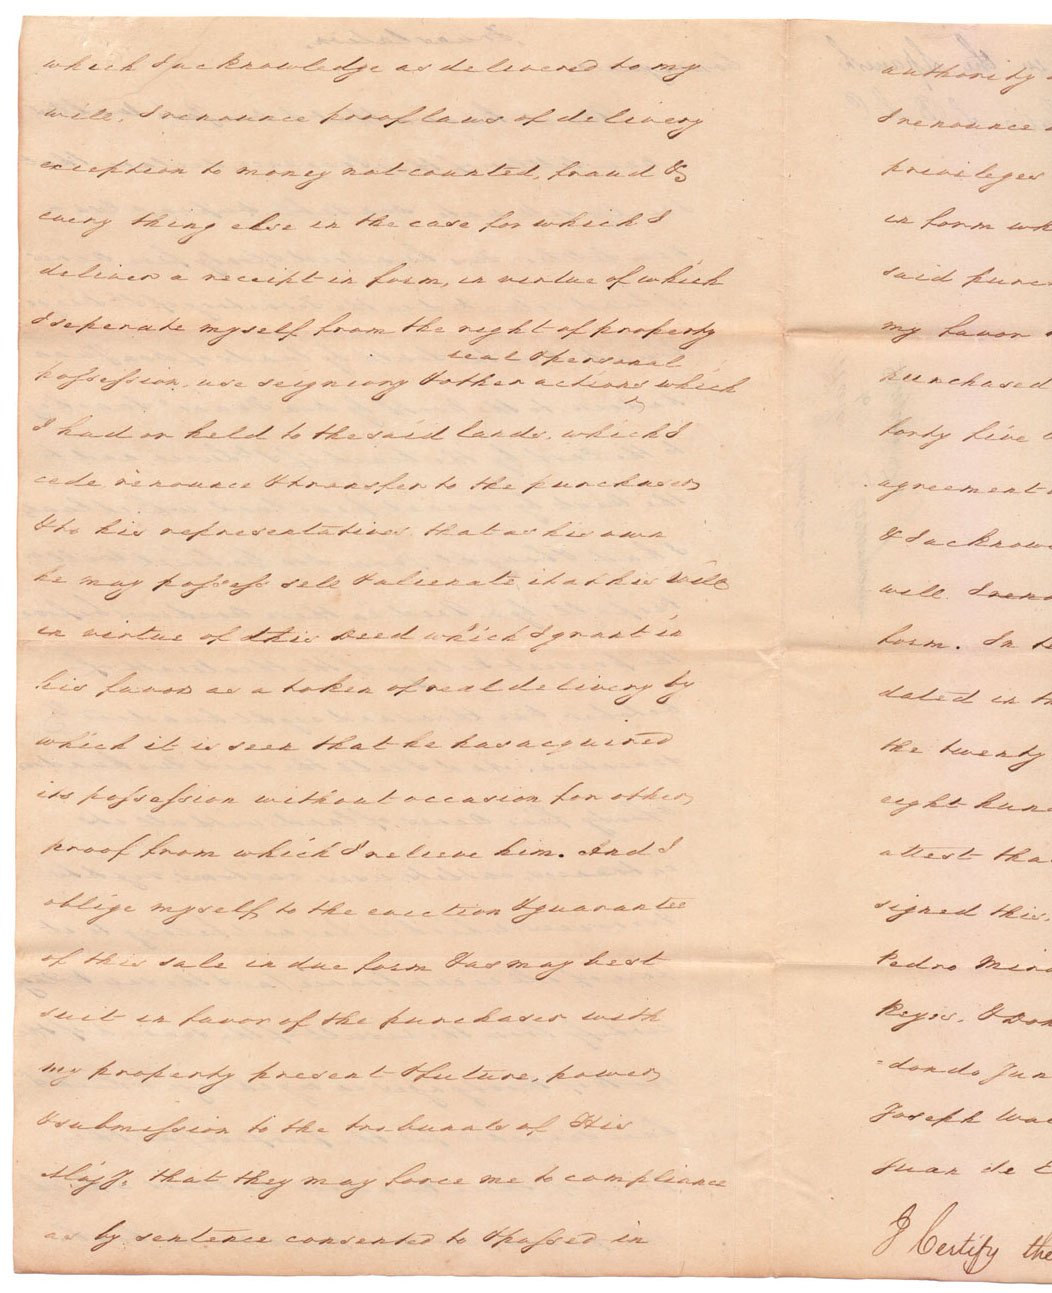 which I acknowledge as delivered to my
will, I renounce proof laws of delivery
exception to money not counted, fraud &
every thing else in the case for which I
deliver a receipt in form, in virtue of which
I seperate myself from the right of property
real & personal
possession, use seigniory & other actions which
I had or held to the said lands, which I
cede renounce & transfer to the purchaser
& to his representatives that as his own
he may possess sell & alienate it at his will
in virtue of this deed which I grant in
his favor as a token of real delivery by
which it is seen that he has acquired
its possession without occasion for other
proof from which I relieve him. And I
oblige myself to the eviction & guarantee
of this sale in due form & as may best
suit in favor of the purchaser with
my property present & future, power
& submission to the tribunals of His
Majy. that they may force me to compliance
as by sentence consented to & passed in
authority
I renounce
privileges
in form
said
my favor
purchased
forty five
agreement
&
will. I
form. In
dated in
the twenty
eight
attest
signed this.
Pedro
Reyes. &
-dondo
Joseph
Juan de
I Certify the